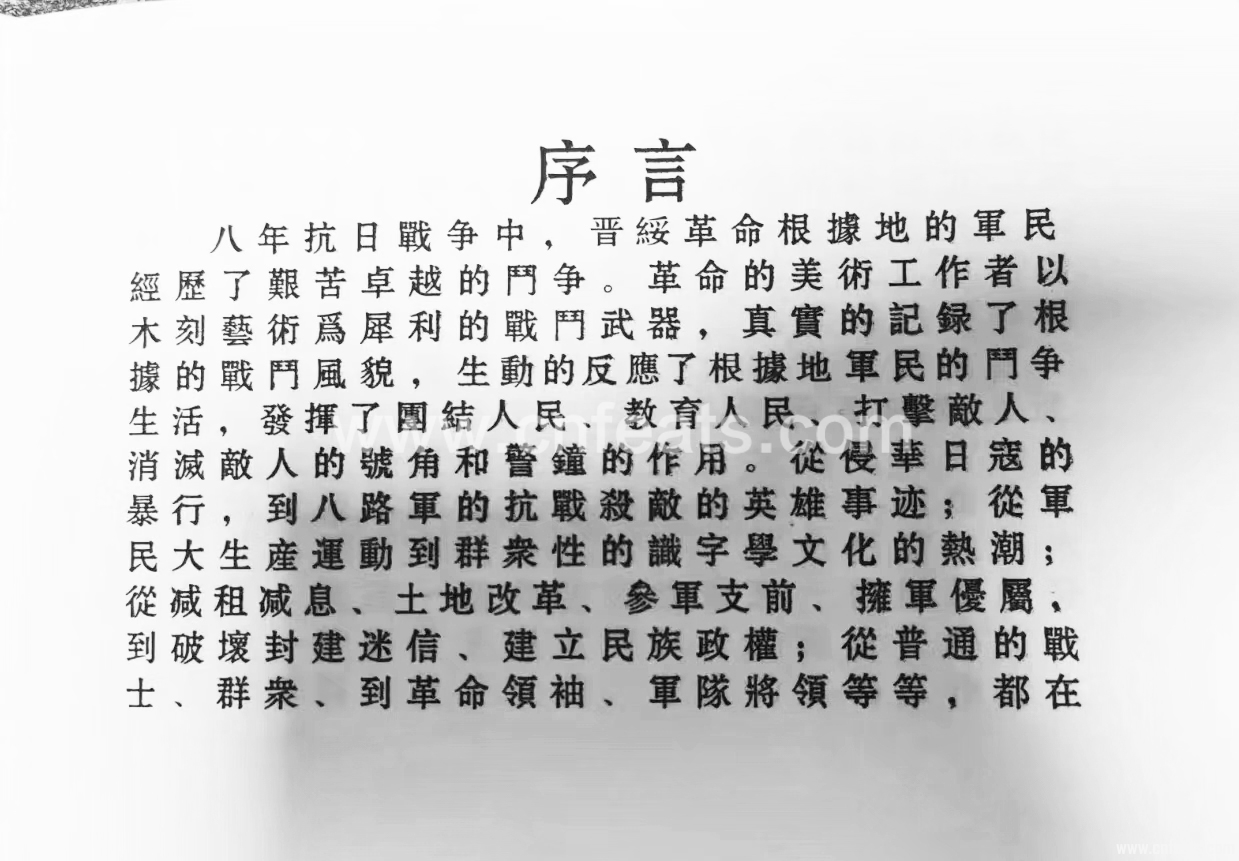 序言
八年抗日戰争中，晋綏革命根據地的軍民
經歷了艱苦卓越的鬥争。革命的美術工作者以
木刻藝術爲犀利的戰鬥武器，真實的記録了根
據的戰鬥風貌，生動的反應了根據地軍民的鬥争
生活，發揮了團結人民、教育人民、打擊敵人、
消滅敵人的號角和警鐘的作用。從侵華日寇的
暴行，到八路軍的抗戰殺敵的英雄事迹；從軍
民大生産運動到群衆性的識字學文化的熱潮；
從减租减息、土地改革、參軍支前、擁軍優屬，
到破壞封建迷信、建立民族政權；從普通的戰
士、群衆、到革命領袖、軍隊將領等等，都在
www.cnfeats.com